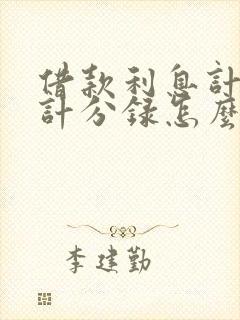 借款利息計
計分錄怎麼
李建勤